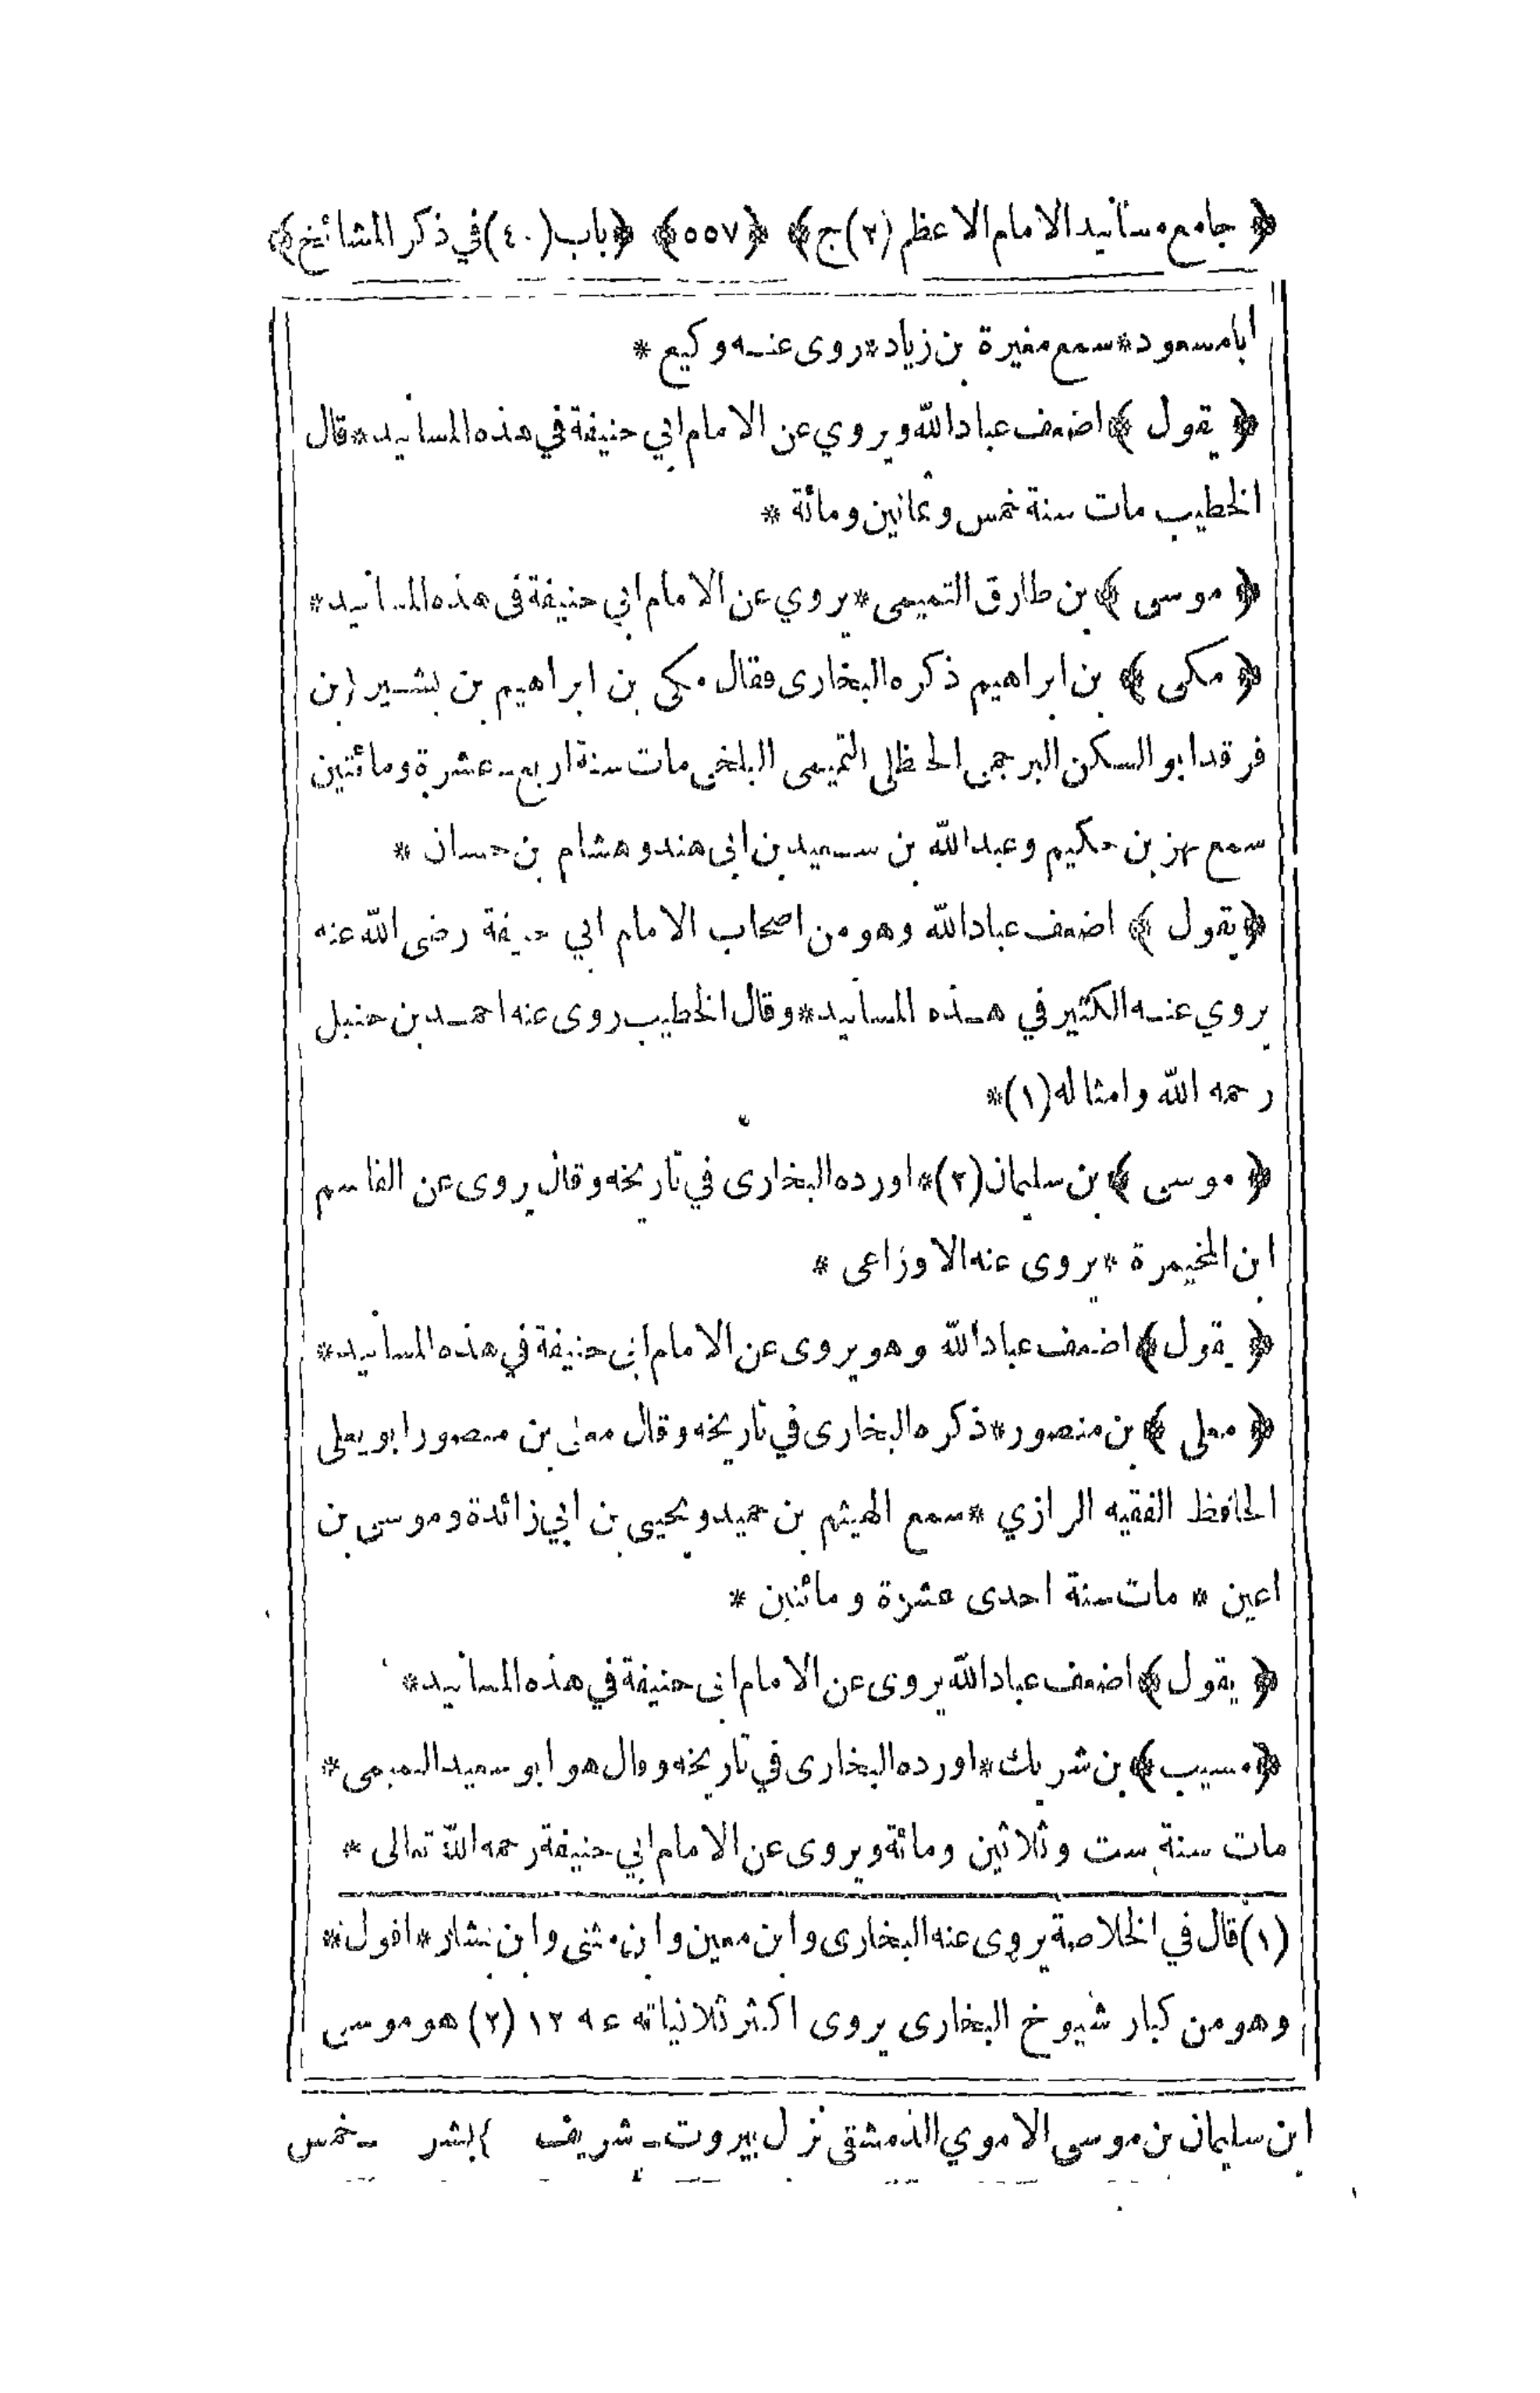 ﴿ جامع مسانيد الامام الاعظم (٢) ج ﴾ ﴿ ٥٥٧ ﴾ ﴿ باب (٤٠) في ذكر المشائخ ﴾
ابا مسعود * سمع مغيرة بن زياد * روى عنه وكيع *
﴿ يقول ﴾ اضعف عباد الله ويروي عن الامام ابي حنيفة في هذه المسانيد * قال
الخطيب مات سنة خمس وثمانين ومائة *
﴿ موسى ﴾ بن طارق التميمى * يروي عن الامام ابي حنيفة فى هذه المسانيد *
﴿ مكى ﴾ بن ابراهيم ذكره البخارى فقال مكى بن ابراهيم بن بشير ابن
فرقد ابو السكن البرجمى الحنظلى التميمى البلخى مات سنة اربع عشرة ومائتين
سمع بهز بن حكيم وعبد الله بن سعيد بن ابى هند وهشام بن حسان *
﴿ يقول ﴾ اضعف عباد الله وهو من اصحاب الامام ابي حنيفة رضى الله عنه
يروي عنه الكثير في هذه المسانيد * وقال الخطيب روى عنه احمد بن حنبل
رحمه الله وامثاله (١) *
﴿ موسى ﴾ بن سليمان (٢) * اورده البخارى في تاريخه وقال يروى عن القاسم
ابن المخيمرة * يروى عنه الاوزاعى *
﴿ يقول ﴾ اضعف عباد الله وهو يروى عن الامام ابى حنيفة في هذه المسانيد *
﴿ معلى ﴾ بن منصور * ذكره البخارى في تاريخه وقال معلى بن منصور ابو يعلى
الحافظ الفقيه الرازي * سمع الهيثم بن حميد ويحيى بن ابي زائدة وموسى بن
اعين * مات سنة احدى عشرة ومائتين *
﴿ يقول ﴾ اضعف عباد الله يروى عن الامام ابى حنيفة في هذه المسانيد *
﴿ مسيب ﴾ بن شريك * اورده البخارى في تاريخه وقال هو ابو سعيد التميمى *
مات سنة ست وثلاثين ومائة ويروى عن الامام ابي حنيفة رحمه الله تعالى *
(١) قال في الخلاصة يروى عنه البخارى وابن معين وابن مثنى وابن بشار * اقول *
وهو من كبار شيوخ البخارى يروى اكثر ثلاثياته عنه ١٢ (٢) هو موسى
ابن سليمان بن موسى الاموي الدمشقى نزل بيروت شريف